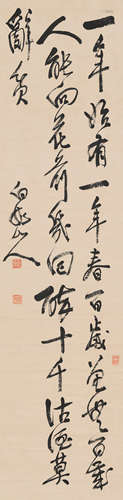 一年始有一年春百歲曾無百歲
人能向花前幾回醉十千沽酒莫
辭貧
白龍山人